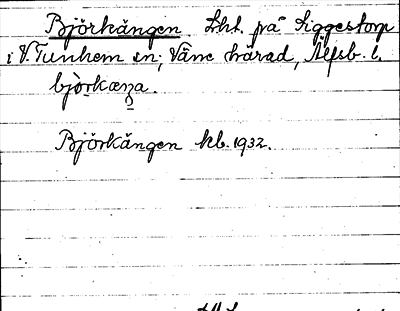 Björkängen. Lht. på Siggestorp
i V. Tunhem sn, Väne härad, Älfsb. l.
Björkängen kb. 1932.